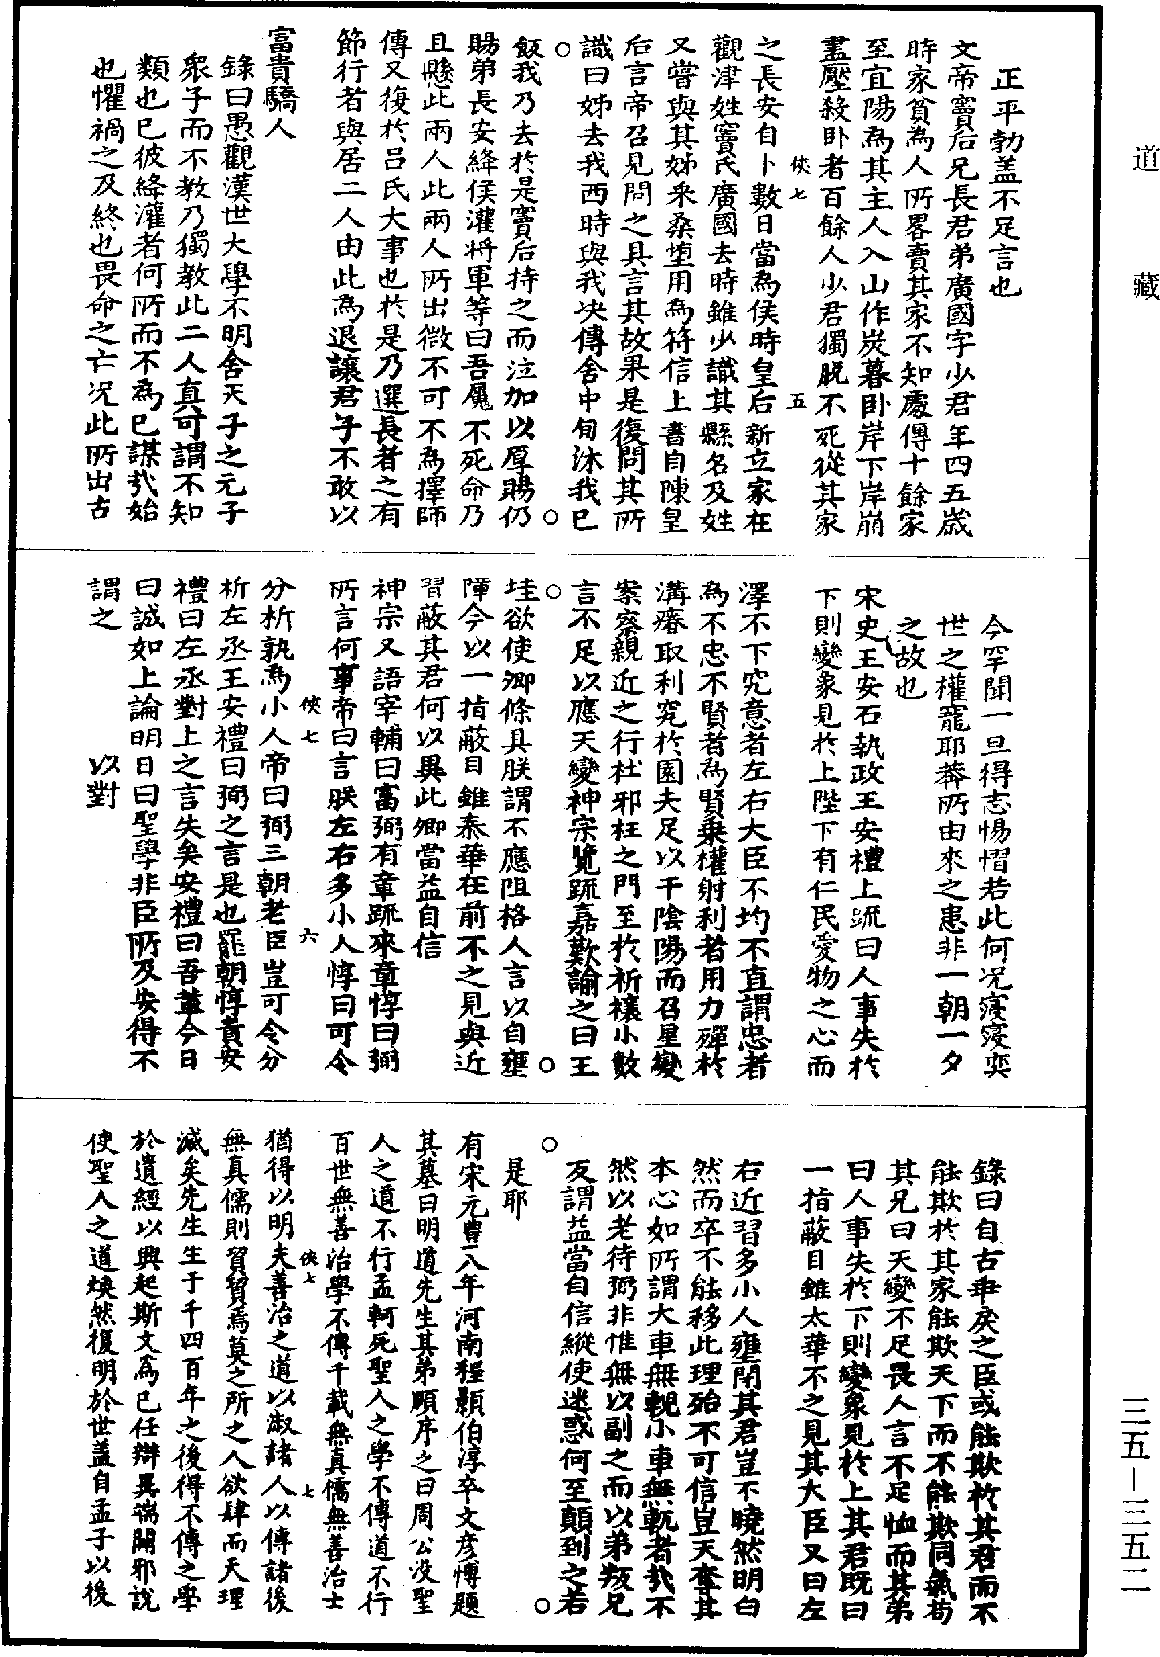 道藏
正平勃盖不足言也
文帝竇后兄長君弟廣國字少君年四五歲
時家貧為人所畧賣其家不知處傳十餘家
至宜陽為其主人入山作炭暮卧岸下岸崩
盡壓殺卧者百餘人少君獨脫不死從其家
俠七 五
之長安自卜數日當為侯時皇后新立家在
觀津姓竇氏廣國去時雖少識其縣名及姓
又嘗與其姊采桑墮用為符信上書自陳皇
后言帝召見問之具言其故果是復問其所
識曰姊去我西時與我决傳舍中匄沐我已
飯我乃去於是竇后持之而泣加以厚賜仍
賜弟長安絳侯灌將軍等曰吾屬不死命乃
且懸此兩人此兩人所出微不可不為擇師
傅又復於吕氏大事也於是乃選長者之有
節行者與居二人由此為退讓君子不敢以
富貴驕人
錄曰愚觀漢世大學不明舍天子之元子
衆子而不教乃獨教此二人真可謂不知
類也已彼絳灌者何所而不為已謀㢤始
也懼禍之及終也畏命之亡况此所出古
今罕聞一旦得志惕慴若此何况寖寖奕
世之權寵耶莽所由來之患非一朝一夕
之故也
宋史王安石執政王安禮上疏曰人事失於
下則變象見於上陛下有仁民愛物之心而
澤不下究意者左右大臣不均不直謂忠者
為不忠不賢者為賢乗權射利者用力殫於
溝瘠取利究於園夫足以干陰陽而召星變
案察親近之行杜邪枉之門至於祈禳小數
言不足以應天變神宗覽疏嘉歎諭之曰王
珪欲使卿條具朕謂不應阻格人言以自壅
障今以一指蔽目雖泰華在前不之見與近
習蔽其君何以異此卿當益自信
神宗又語宰輔曰富弼有章疏來章惇曰弼
所言何事帝曰言朕左右多小人惇曰可令
俠七 六
分析孰為小人帝曰弼三朝老臣豈可令分
析左丞王安禮曰弼之言是也罷朝惇責安
禮曰左丞對上之言失矣安禮曰吾輩今日
曰誠如上諭明日曰聖學非臣所及安得不
謂之 以對
錄曰自古乖戾之臣或能欺於其君而不
能欺於其家能欺天下而不能欺同氣苟
其兄曰天變不足畏人言不足恤而其弟
曰人事失於下則變象見於上其君既曰
一指蔽目雖太華不之見其大臣又曰左
右近習多小人壅閉其君豈不曉然明白
然而卒不能移此理殆不可信豈天奪其
本心如所謂大車無輗小車無軏者㢤不
然以老待弼非惟無以副之而以弟叛兄
反謂益當自信縱使迷惑何至顛到之若
是耶
有宋元豊八年河南程顥伯淳卒文彦慱題
其墓曰明道先生其弟頤序之曰周公没聖
人之道不行孟軻死聖人之學不傳道不行
百世無善治學不傳千載無真儒無善治士
俠七 七
猶得以明夫善治之道以淑諸人以傳諸後
無真儒則貿貿焉莫之所之人欲肆而天理
滅矣先生生于千四百年之後得不傳之學
於遺經以興起斯文為已任辯異端闢邪說
使聖人之道煥然復明於世盖自孟子以後
三五－三五二